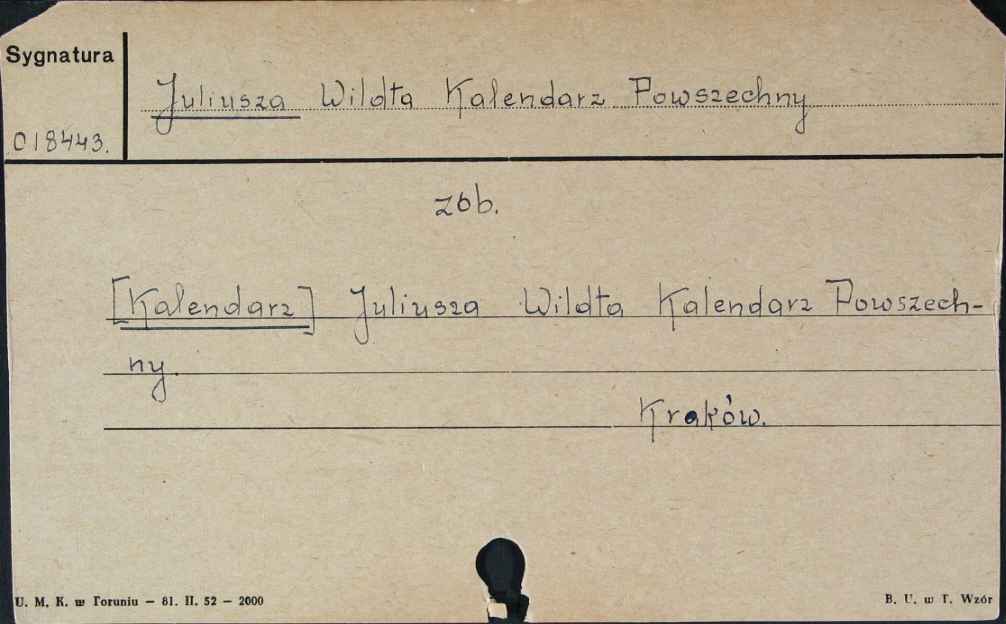 Sygnatura
Juliusza Wildta Kalendarz Powszechny
018443.
zob.
[Kalendarz] Juliusza Wildta Kalendarz Powszech-
ny.
Kraków.
U. M. K. w Toruniu — 81. II. 52 — 2000
B. U. w T. Wzór